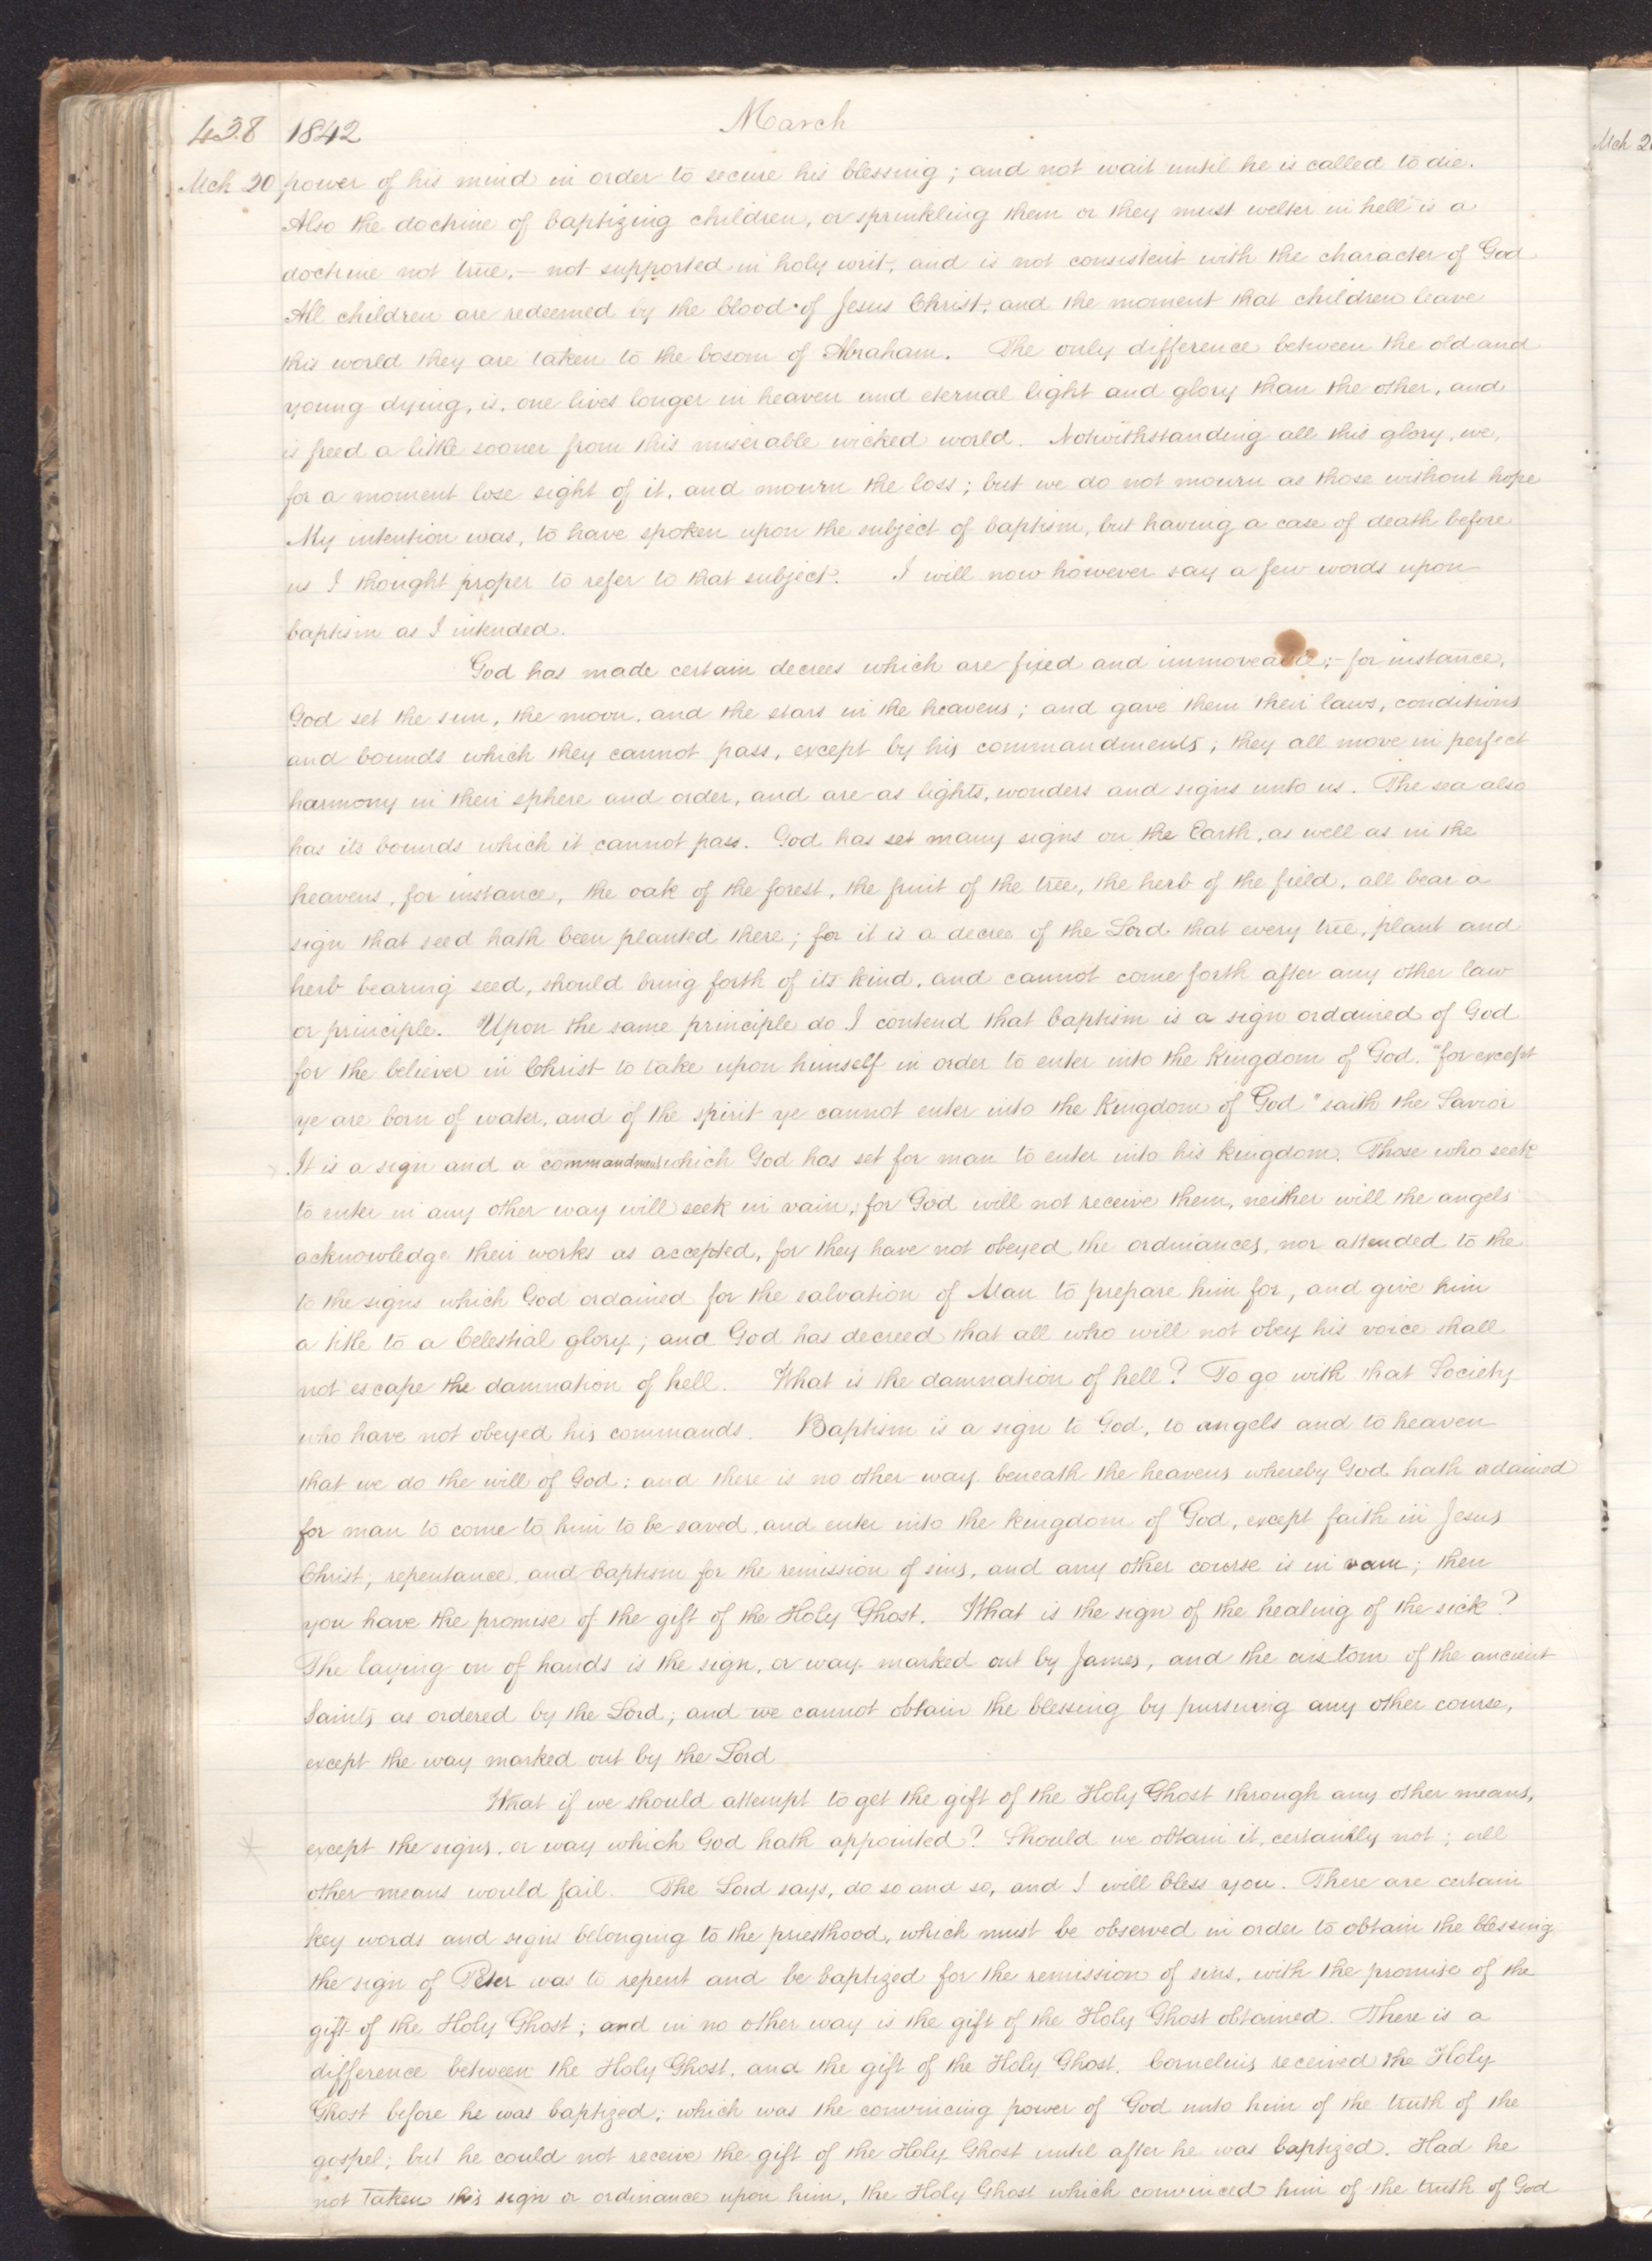 March
438 1842
Mch 20 power of his mind in order to secure his blessing; and not wait until he is called to die.
Also the doctrine of baptizing children, or sprinkling them or they must welter in hell is a
doctrine not true,— not supported in holy writ, and is not consistent with the character of God
All children are redeemed by the blood of Jesus Christ, and the moment that children leave
this world they are taken to the bosom of Abraham. The only difference between the old and
young dying, is, one lives longer in heaven and eternal light and glory than the other, and
is freed a little sooner from this miserable wicked world. Notwithstanding all this glory, we,
for a moment lose sight of it, and mourn the loss; but we do not mourn as those without hope
My intention was, to have spoken upon the subject of baptism, but having a case of death before
us I thought proper to refer to that subject. I will now however say a few words upon
baptism as I intended.
God has made certain decrees which are fixed and immoveable;- for instance,
God set the sun, the moon, and the stars in the heavens; and gave them their laws, conditions
and bounds which they cannot pass, except by his commandments; they all move in perfect
harmony in their sphere and order, and are as lights, wonders and signs unto us. The sea also
has its bounds which it cannot pass. God has set many signs on the Earth, as well as in the
heavens, for instance, the oak of the forest, the fruit of the tree, the herb of the field, all bear a
sign that seed hath been planted there; for it is a decree of the Lord that every tree, plant and
herb bearing seed, should bring forth of its kind, and cannot come forth after any other law
or principle. Upon the same principle do I contend that baptism is a sign ordained of God
for the believer in Christ to take upon himself in order to enter into the kingdom of God. "for except
ye are born of water, and of the spirit ye cannot enter into the Kingdom of God" saith the Savior
It is a sign and a commandment which God has set for man to enter into his kingdom. Those who seek
to enter in any other way will seek in vain, for God will not receive them, neither will the angels
acknowledge their works as accepted, for they have not obeyed the ordinances, nor attended to the
to the signs which God ordained for the salvation of Man to prepare him for, and give him
a title to a Celestial glory; and God has decreed that all who will not obey his voice shall
not escape the damnation of hell. What is the damnation of hell? To go with that Society
who have not obeyed his commands. Baptism is a sign to God, to angels and to heaven
that we do the will of God; and there is no other way beneath the heavens whereby God hath ordained
for man to come to him to be saved, and enter into the kingdom of God, except faith in Jesus
Christ, repentance, and baptism for the remission of sins, and any other course is in vain; then
you have the promise of the gift of the Holy Ghost. What is the sign of the healing of the sick?
The laying on of hands is the sign, or way marked out by James, and the custom of the ancient
Saints as ordered by the Lord; and we cannot obtain the blessing by pursuing any other course,
except the way marked out by the Lord
What if we should attempt to get the gift of the Holy Ghost through any other means,
except the signs, or way which God hath appointed? Should we obtain it, certainly not; all
other means would fail. The Lord says, do so and so, and I will bless you. There are certain
key words and signs belonging to the priesthood, which must be observed in order to obtain the blessing
the sign of Peter was to repent and be baptized for the remission of sins, with the promise of the
gift of the Holy Ghost; and in no other way is the gift of the Holy Ghost obtained. There is a
difference between the Holy Ghost, and the gift of the Holy Ghost. Cornelius received the Holy
Ghost before he was baptized; which was the convincing power of God unto him of the truth of the
gospel; but he could not receive the gift of the Holy Ghost until after he was baptized. Had he
not taken this sign or ordinance upon him, the Holy Ghost which convinced him of the truth of God
Mch 2